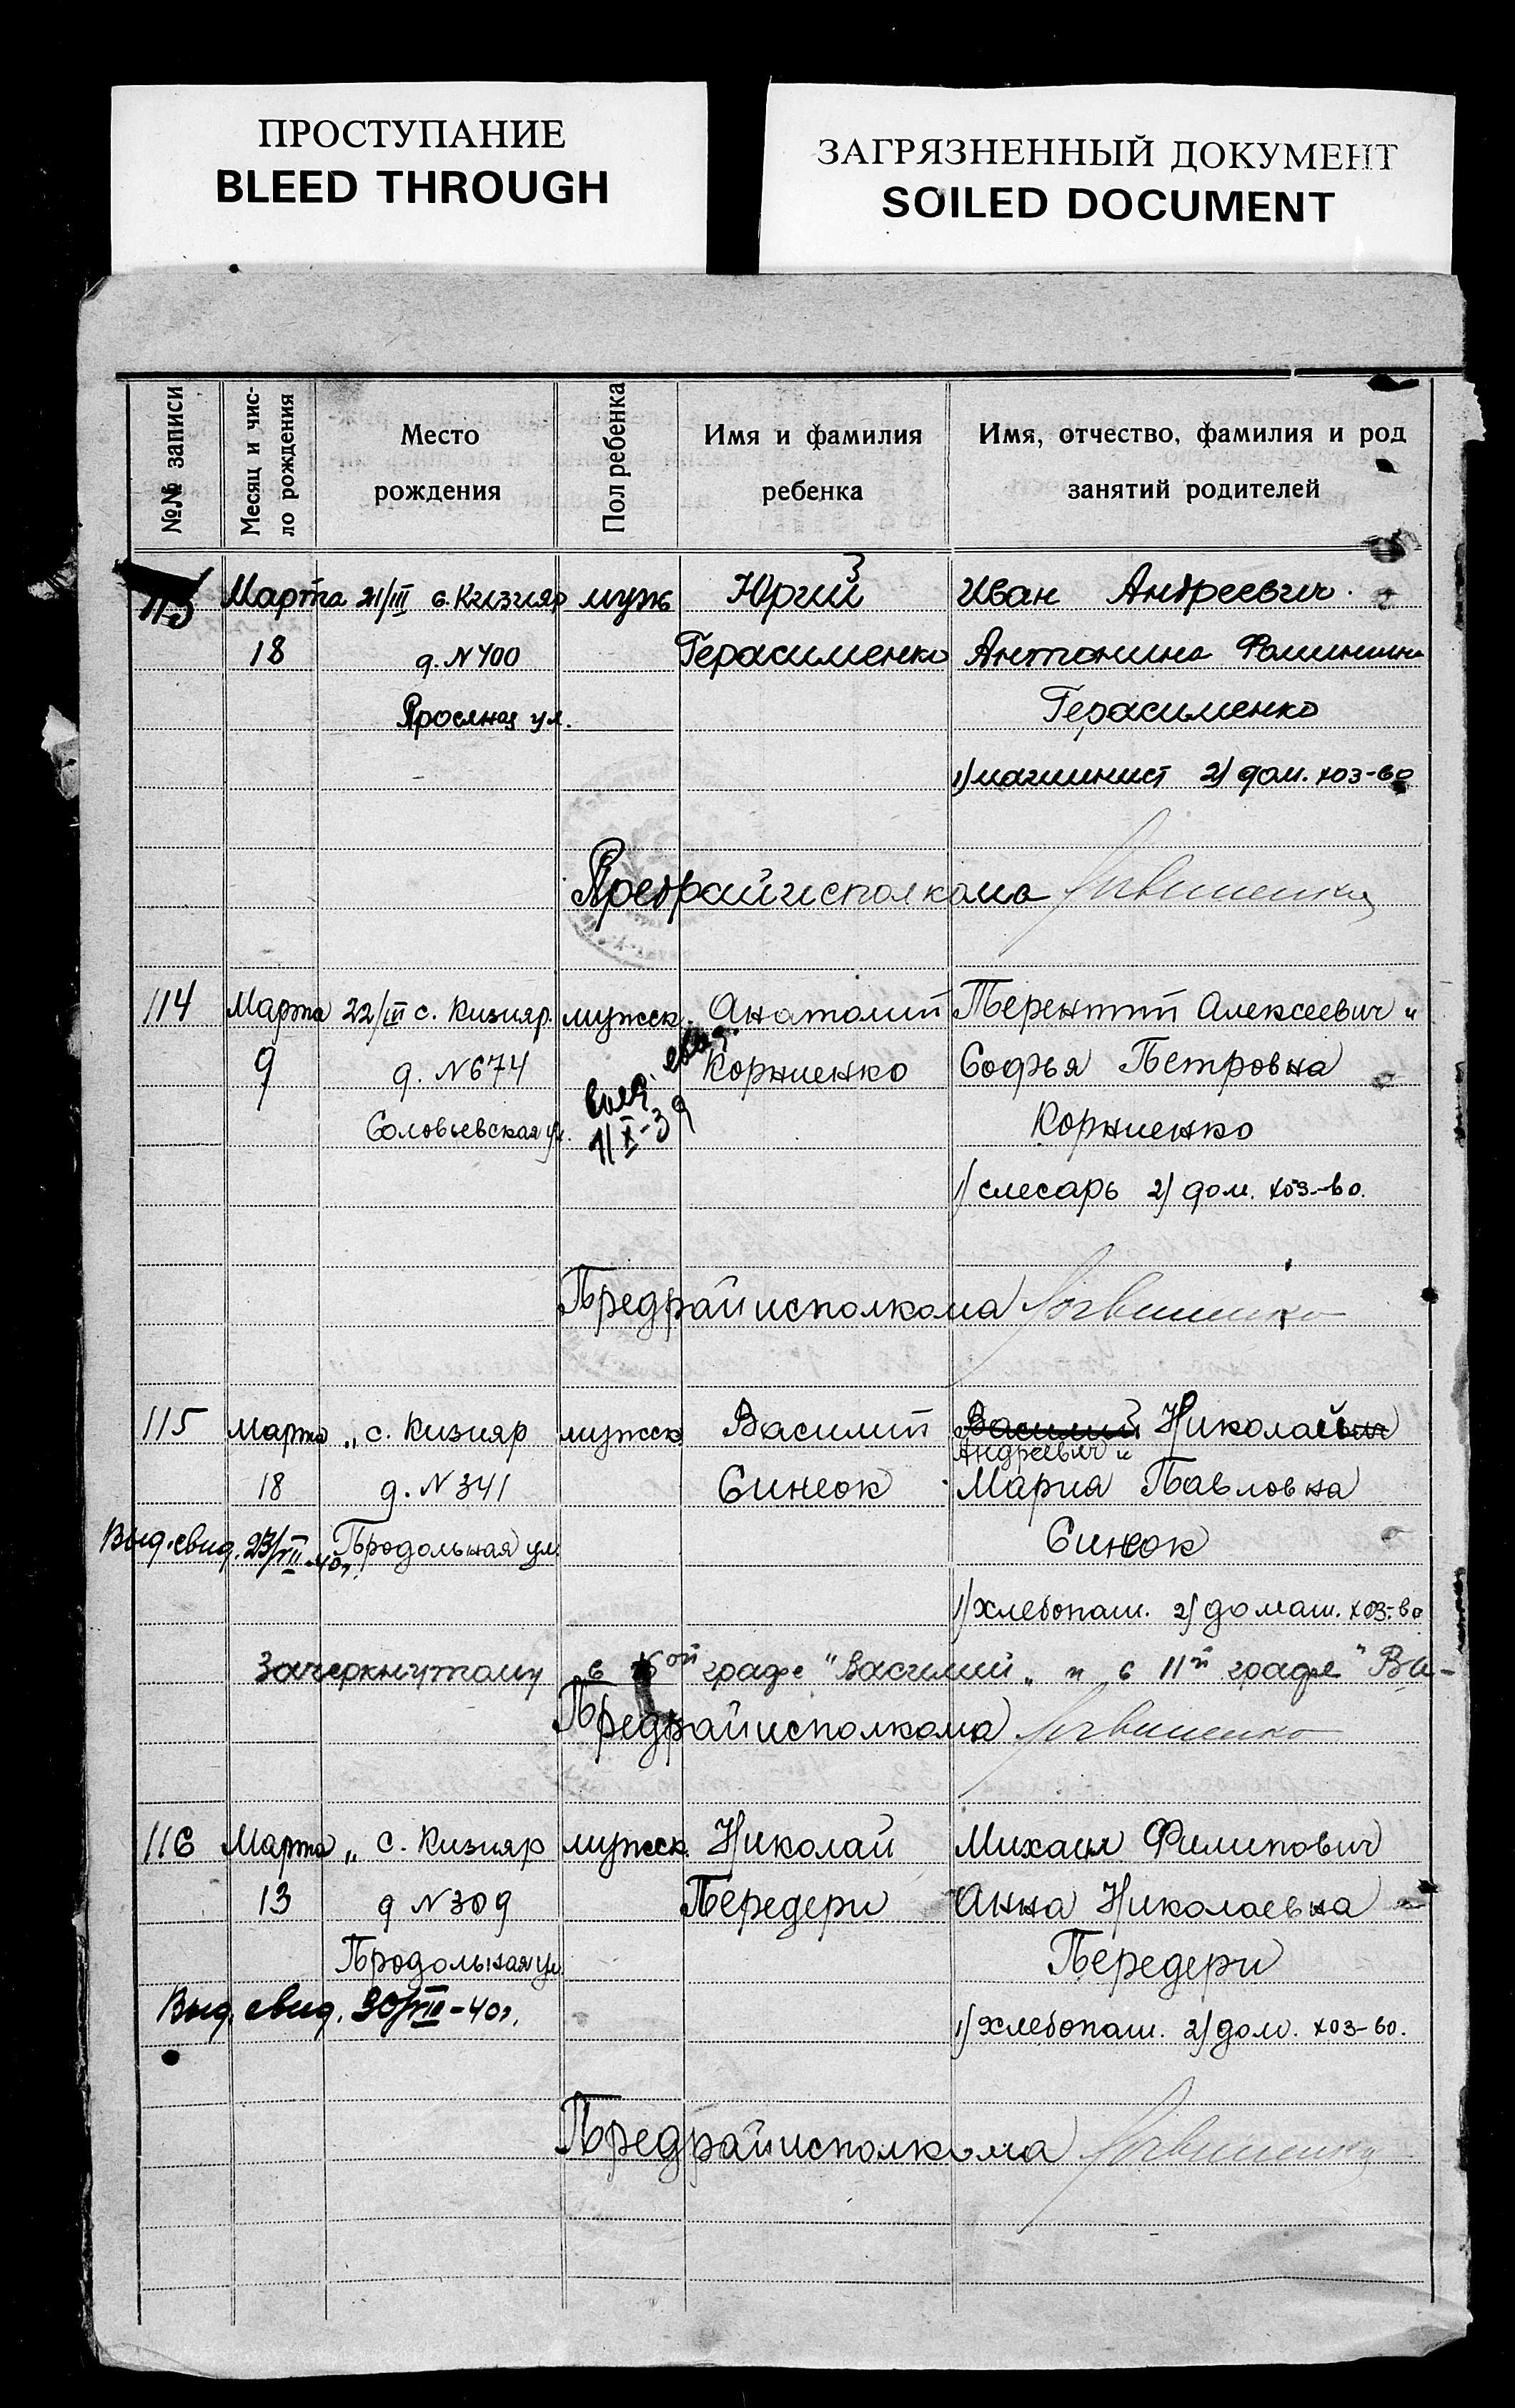 ПРОСТУПАНИЕ
BLEED THROUGH
ЗАГРЯЗНЕННЫЙ ДОКУМЕНТ
SOILED DOCUMENT
№№ записи
Месяц и чис-
ло рождения
Место
рождения
Пол ребенка
Имя и фамилия
ребенка
Имя, отчество, фамилия и род
занятий родителей
113 Марта 21/III с. Кизияр муж Юрий Иван Андреевич
18 д. N 400 Герасименко Антонина
ул. Герасименко
1) машинист 2) дом. хоз-во
Предрайисполкома
114 Марта 22/III с. Кизияр. мужск. Анатолий Терентий Алексеевич и
9 д. N 674 Корниенко Софья Петровна
Соловьевская ул. 11/X-39 Корниенко
1) слесарь 2) дом. хоз-во.
Предрайисполкома
115 Марта " с. Кизияр мужск Василий Василий Николай
Андреевич и
18 д. N 341 Синеок Мария Павловна
Выд. свид. 23/VII-40г. Продольная ул. Синеок
1) хлебопаш. 2) домаш. хоз-во
Зачеркнутому в графе "Василий" и в 11й графе "Ва-
Предрайисполкома
116 Марта " с. Кизияр мужск. Николай Михаил Филипович
13 д N 309 Передери Анна Николаевна
Продольная ул. Передери
Выд. свид. 30/VIII-40г. 1) хлебопаш. 2) дом. хоз-во.
Предрайисполкома